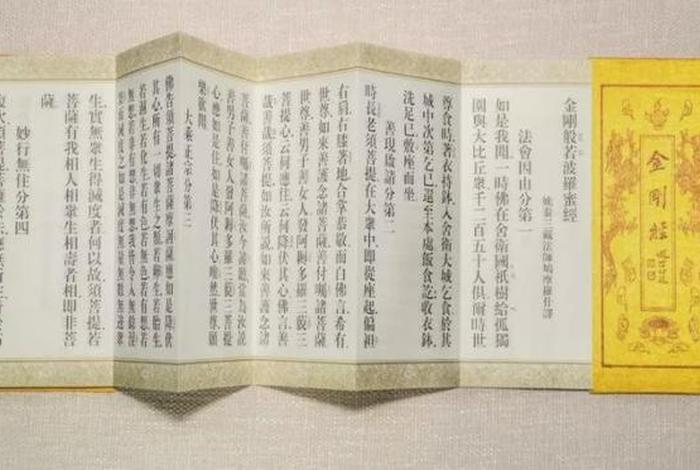 金剛經
金剛般若波羅蜜經
姚秦三藏法師鳩摩羅什譯
法會因由分第一
如是我聞一時佛在舍衛國祇樹給孤獨
園與大比丘衆千二百五十人俱爾時世
尊食時著衣持鉢入舍衛大城乞食於其
城中次第乞已還至本處飯食訖收衣鉢
洗足已敷座而坐
善現啟請分第二
時長老須菩提在大衆中即從座起偏袒
右肩右膝著地合掌恭敬而白佛言希有
世尊如來善護念諸菩薩善付囑諸菩薩
世尊善男子善女人發阿耨多羅三藐三
菩提心云何應住云何降伏其心佛言善
哉善哉須菩提如汝所說如來善護念諸
菩薩善付囑諸菩薩汝今諦聽當為汝說
善男子善女人發阿耨多羅三藐三菩提
心應如是住如是降伏其心唯然世尊願
樂欲聞
大乘正宗分第三
佛告須菩提諸菩薩摩訶薩應如是降伏
其心所有一切衆生之類若卵生若胎生
若濕生若化生若有色若無色若有想若
無想若非有想非無想我皆令入無餘涅
槃而滅度之如是滅度無量無數無邊衆
生實無衆生得滅度者何以故須菩提若
菩薩有我相人相衆生相壽者相即非菩
薩
妙行無住分第四